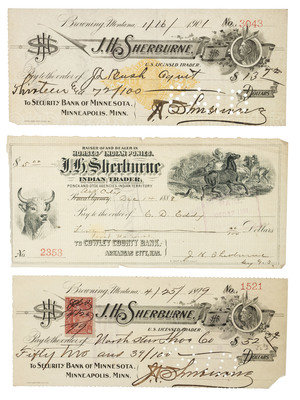 Browning, Montana, 1/16/ 1901 No. 3043
J. H. SHERBURNE,
U.S. LICENSED TRADER.
Pay to the order of J. Rush $13 72
Thirteen 72/100 DOLLARS
TO SECURITY BANK OF MINNESOTA,
MINNEAPOLIS, MINN.
RAISER OF AND DEALER IN
HORSES & INDIAN PONIES.
$5.00 J. H. Sherburne
INDIAN TRADER,
PONCA AND OTOE AGENCIES, INDIAN TERRITORY
Agency, Dec 188
Pay to the order of C. D.
Dollars
TO COWLEY COUNTY BANK,
ARKANSAS CITY, KAS.
No 2353 J. H. Sherburne
Browning, Montana, 4/25/ 1899 No. 1521
J. H. SHERBURNE,
U.S. LICENSED TRADER.
Pay to the order of North Star Shoe Co $52
Fifty two and 39/100 DOLLARS
TO SECURITY BANK OF MINNESOTA,
MINNEAPOLIS, MINN.